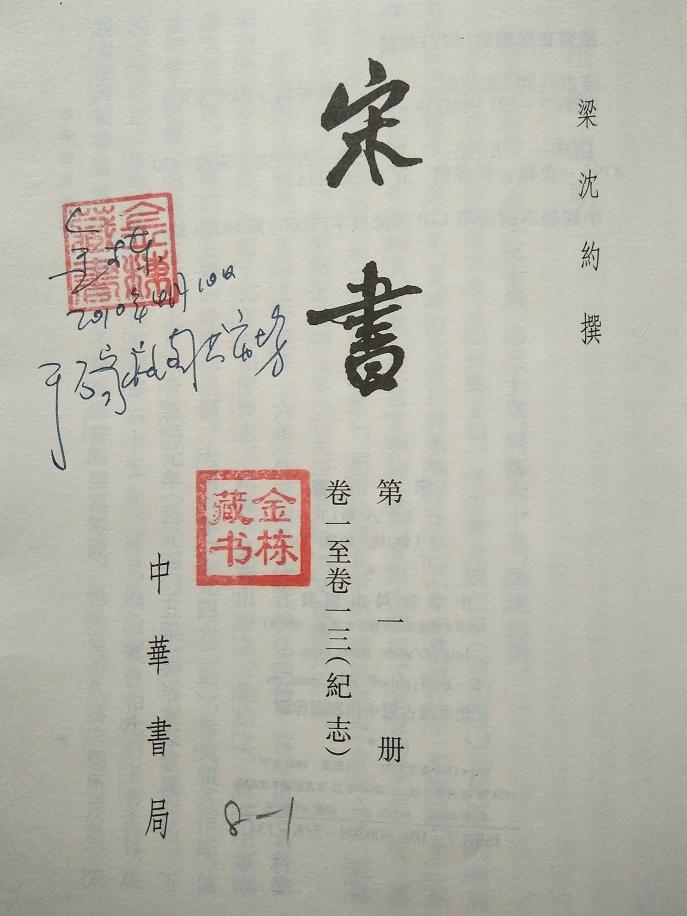 梁沈約撰
宋書
第一册
卷一至卷一三(紀志)
中華書局
金栋藏书
2010年4月10日
8-1